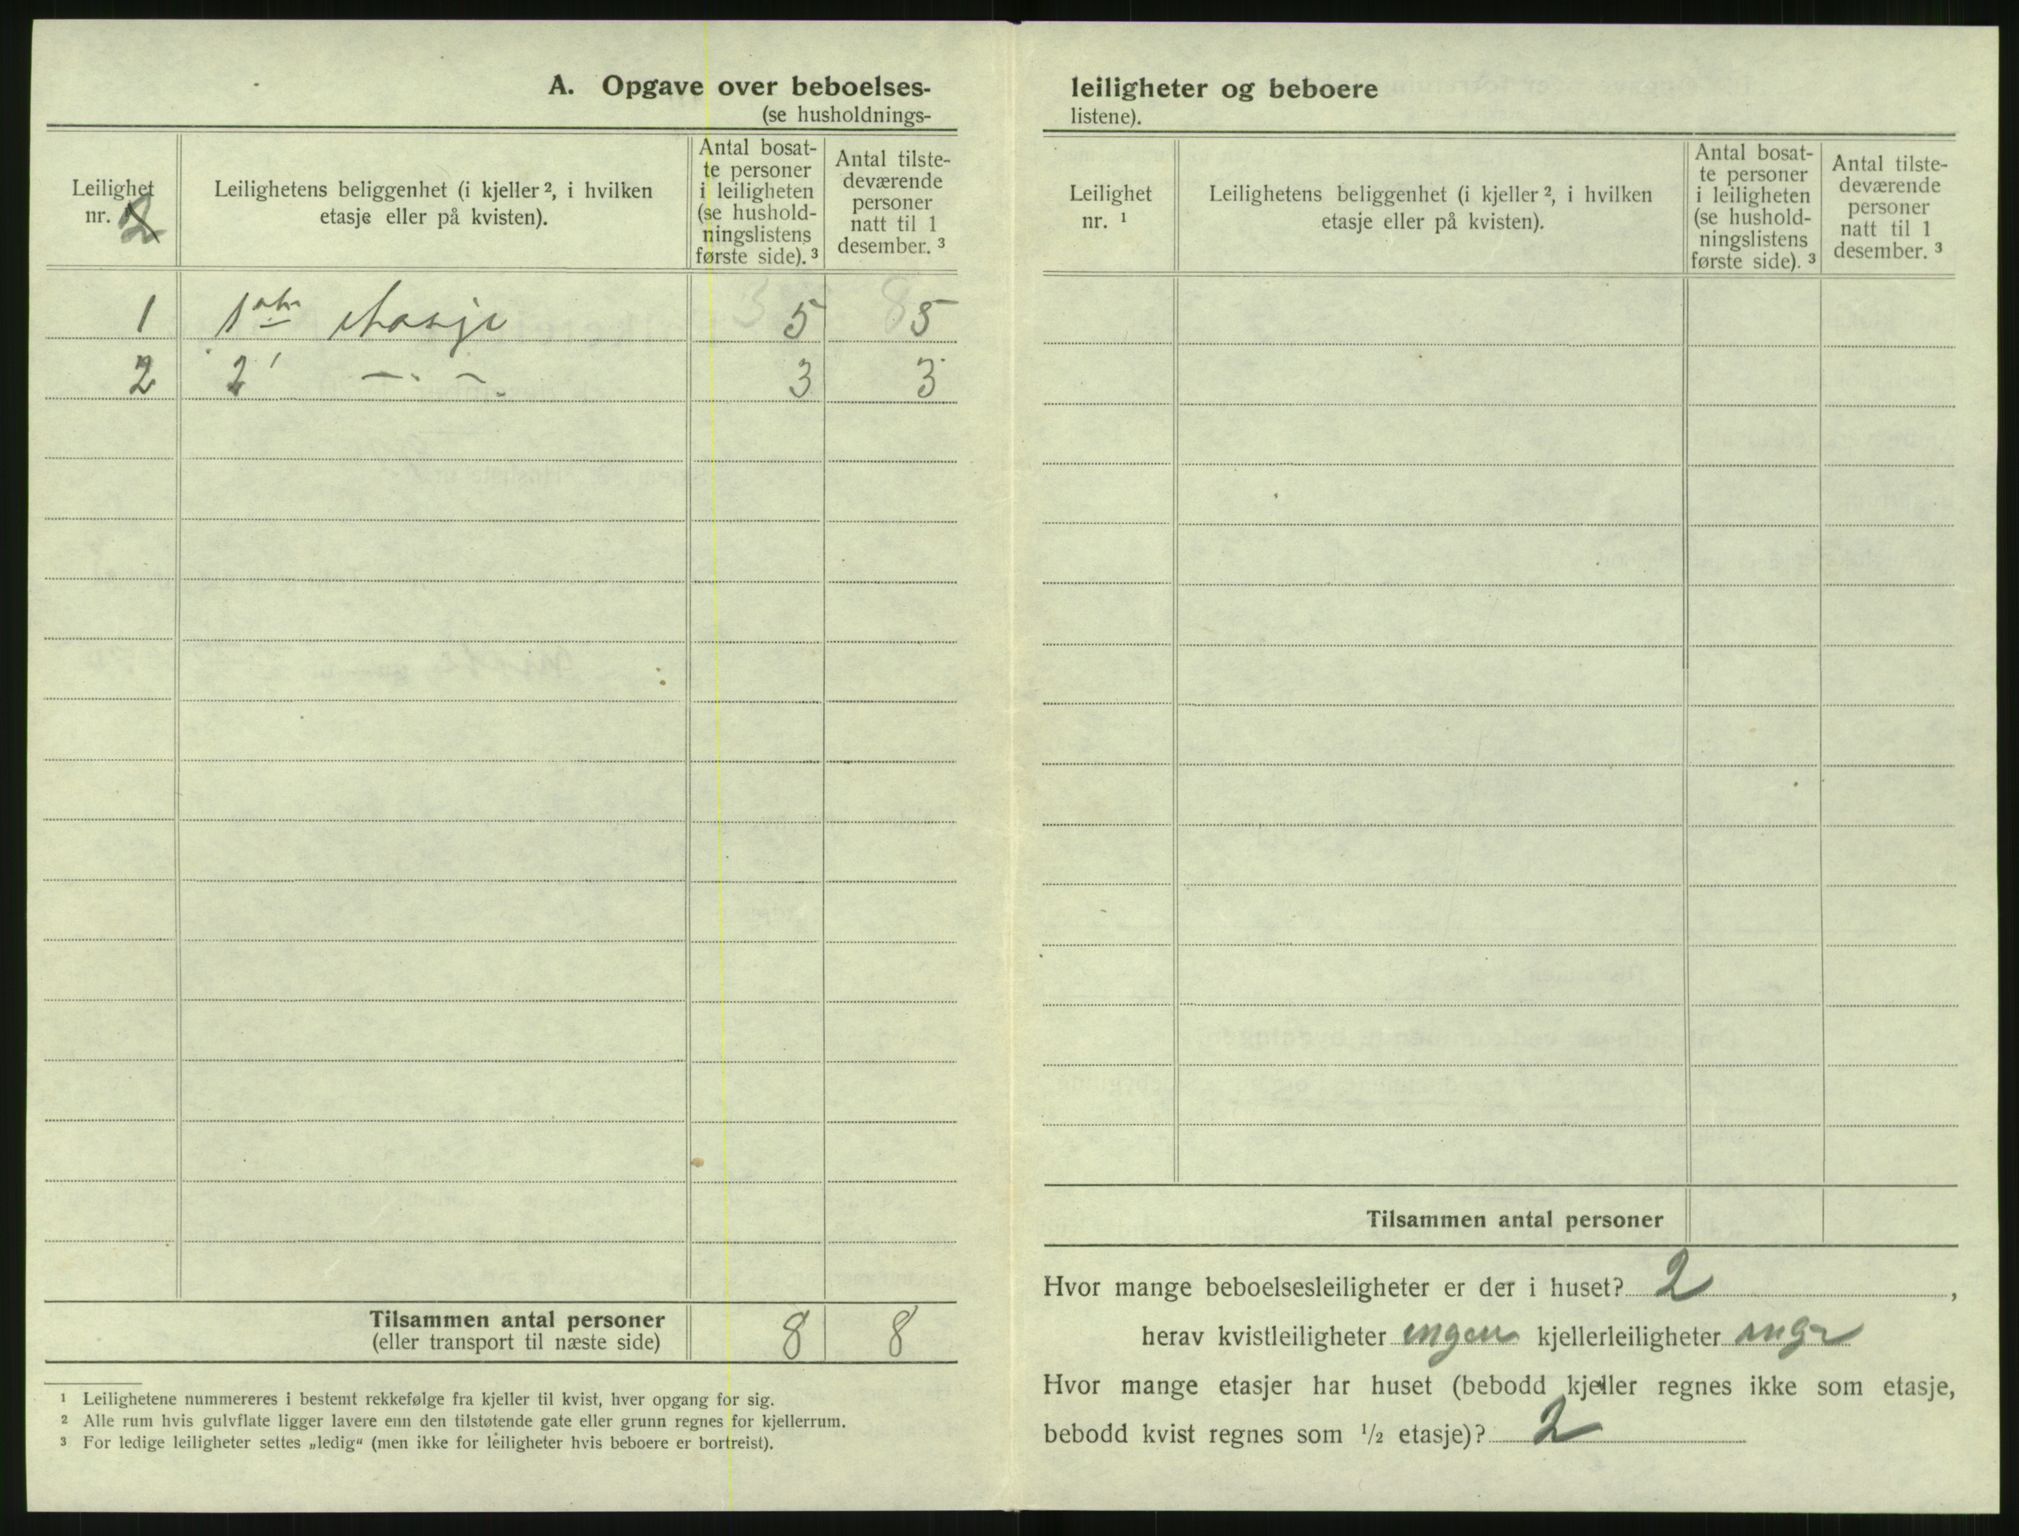 A. Opgave over beboelses-
(se husholdnings-
Leilighet nr. 2
Leilighetens beliggenhet (i kjeller ², i hvilken etasje eller på kvisten).
Antal bosat-
te personer
i leiligheten
(se hushold-
ningslistens
første side). ³
Antal tilste-
deværende
personer
natt til 1
desember. ³
1 1ste etasje 5 5
2 2' — . — 3 3
Tilsammen antal personer 8 8
(eller transport til næste side)
¹ Leilighetene nummereres i bestemt rekkefølge fra kjeller til kvist, hver opgang for sig.
² Alle rum hvis gulvflate ligger lavere enn den tilstøtende gate eller grunn regnes for kjellerrum.
³ For ledige leiligheter settes „ledig“ (men ikke for leiligheter hvis beboere er bortreist).
leiligheter og beboere
listene).
Leilighet
nr. ¹
Leilighetens beliggenhet (i kjeller ², i hvilken
etasje eller på kvisten).
Antal bosat-
te personer
i leiligheten
(se hushold-
ningslistens
første side). ³
Antal tilste-
deværende
personer
natt til 1
desember. ³
Tilsammen antal personer
Hvor mange beboelsesleiligheter er der i huset? 2 ,
herav kvistleiligheter ingen kjellerleiligheter
Hvor mange etasjer har huset (bebodd kjeller regnes ikke som etasje,
bebodd kvist regnes som ½ etasje)? 2